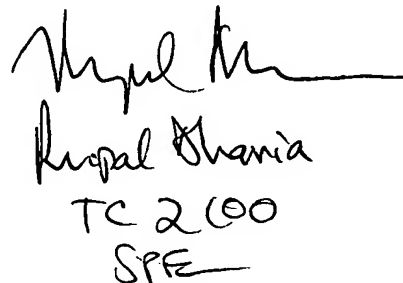 Rupal Dharia
TC 2100
SPE